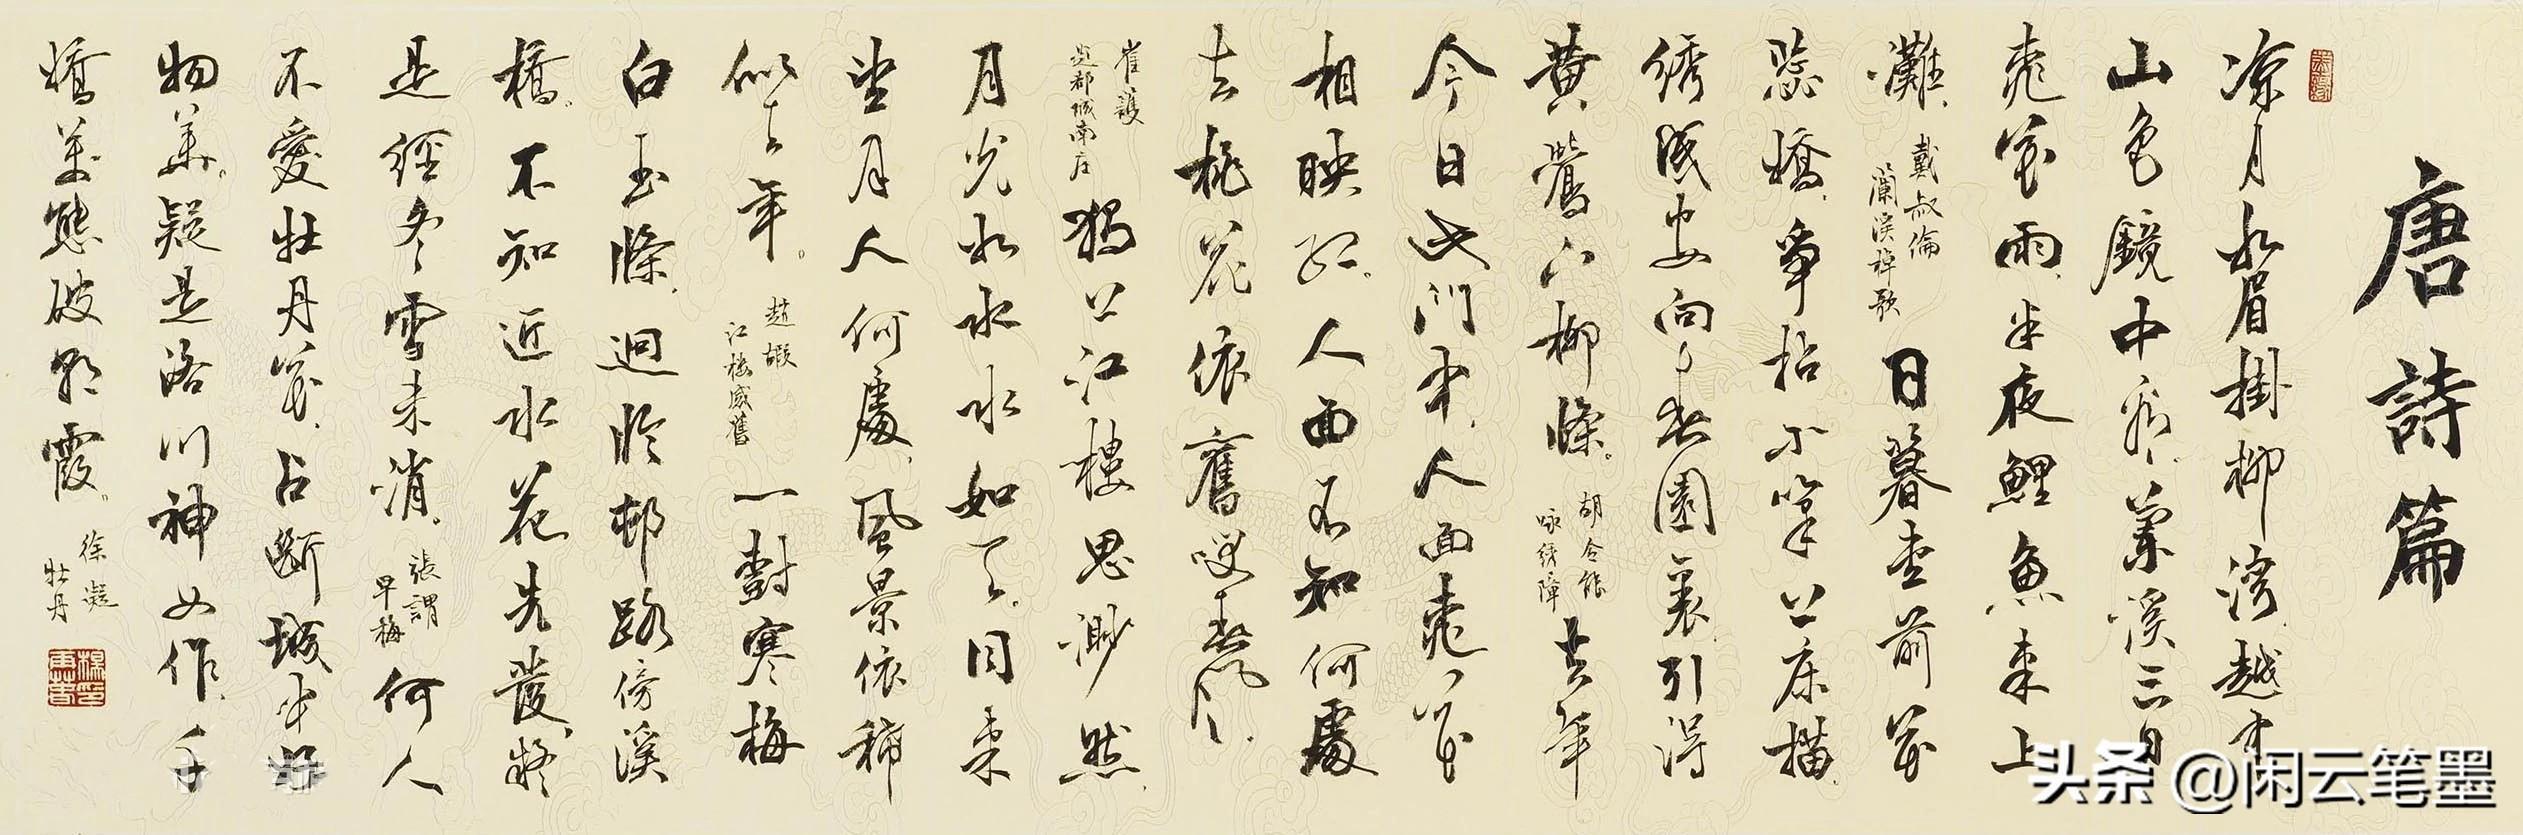 唐詩篇
涼月如眉掛柳灣越中
山色鏡中看蘭溪三日
桃花雨半夜鯉魚來上
灘
戴叔倫
蘭溪棹歌
日暮堂前花
蕊嬌爭拈小筆上床描
綉成安向春園裏引得
黃鶯下柳條
胡令能
咏綉障
去年
今日此門中人面桃花
相映紅人面不知何處
去桃花依舊笑春風
崔護
題都城南庄
獨上江樓思渺然
月光如水水如天同來
望月人何處風景依稀
似去年
趙嘏
江樓感舊
一樹寒梅
白玉條迥臨邨路傍溪
橋不知近水花先發疑
是經冬雪未消
張謂
早梅
何人
不愛牡丹花占斷城中好
物華疑是洛川神女作千
嬌萬態破朝霞
徐凝
牡丹
头条 @闲云笔墨